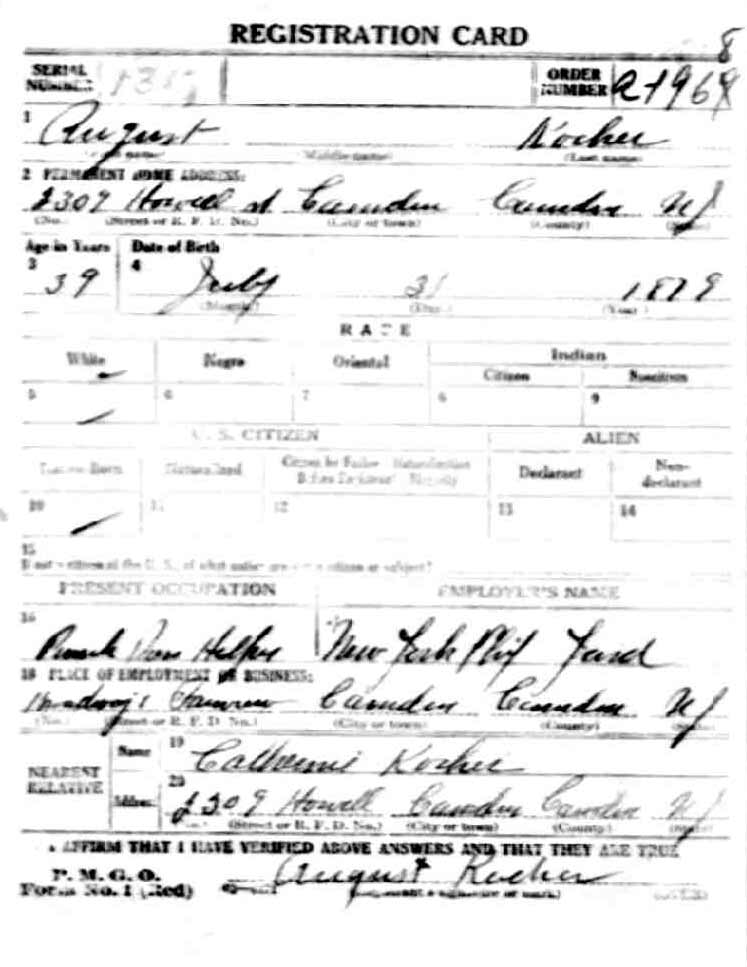 REGISTRATION CARD
8
SERIAL NUMBER
ORDER NUMBER
1 August Kocher
(Middle name) (Last name)
2 PERMANENT HOME ADDRESS:
2309 Howell st Camden Camden NJ
(No.) (Street or R. F. D. No.) (City or town) (County) (State)
Age in Years Date of Birth
3 39 4 July 31 1879
(Month) (Day) (Year)
RACE
White Negro Oriental Indian
Citizen Noncitizen
5 6 7 8 9
U. S. CITIZEN ALIEN
Native Born Naturalized Citizen by Father's Naturalization Before Registrant's Majority Declarant Non-declarant
10 11 12 13 14
15
If not a citizen of the U. S., of what nation are you a citizen or subject?
PRESENT OCCUPATION EMPLOYER'S NAME
16 Helper New York Ship Yard
18 PLACE OF EMPLOYMENT OR BUSINESS:
Broadway & Fairview Camden Camden NJ
(No.) (Street or R. F. D. No.) (City or town) (County) (State)
NEAREST RELATIVE
Name 19 Catherine Kocher
Address 20 2309 Howell Camden Camden NJ
(No.) (Street or R. F. D. No.) (City or town) (County) (State)
I AFFIRM THAT I HAVE VERIFIED ABOVE ANSWERS AND THAT THEY ARE TRUE
P. M. G. O.
Form No. 1 (Red) August Kocher
(Registrant's signature or mark) (OVER)